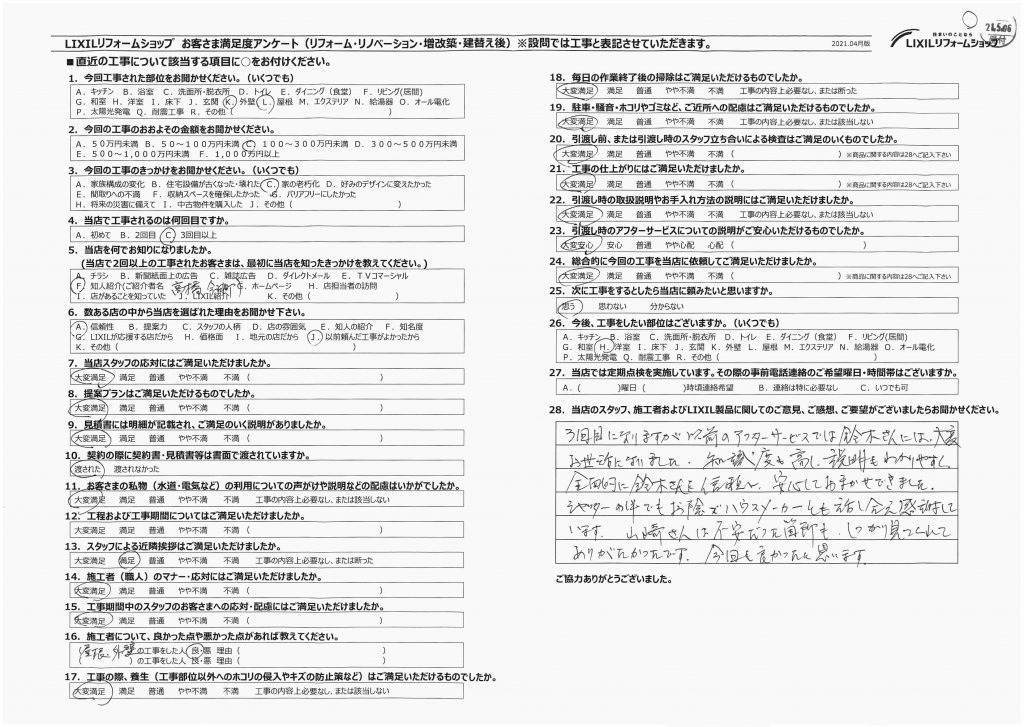 24.5.06
受付
LIXILリフォームショップ お客さま満足度アンケート（リフォーム・リノベーション・増改築・建替え後）※設問では工事と表記させていただきます。
2021.04月版
住まいのことなら
LIXILリフォームショップ
■直近の工事について該当する項目に○をお付けください。
1．今回工事された部位をお聞かせください。（いくつでも）
A．キッチン B．浴室 C．洗面所・脱衣所 D．トイレ E．ダイニング（食堂） F．リビング(居間)
G．和室 H．洋室 I．床下 J．玄関 K．外壁 L．屋根 M．エクステリア N．給湯器 O．オール電化
P．太陽光発電 Q．耐震工事 R．その他（ ）
2．今回の工事のおおよその金額をお聞かせください。
A．５０万円未満 B．５０～１００万円未満 C．１００～３００万円未満 D．３００～５００万円未満
E．５００～１,０００万円未満 F．１,０００万円以上
3．今回の工事のきっかけをお聞かせください。（いくつでも）
A．家族構成の変化 B．住宅設備が古くなった・壊れた C．家の老朽化 D．好みのデザインに変えたかった
E．間取りへの不満 F．収納スペースを確保したかった G．バリアフリーにしたかった
H．将来の災害に備えて I．中古物件を購入した J．その他（ ）
4．当店で工事されるのは何回目ですか。
A．初めて B．2回目 C．3回目以上
5．当店を何でお知りになりましたか。
（当店で2回以上の工事されたお客さまは、最初に当店を知ったきっかけを教えてください。）
A．チラシ B．新聞紙面上の広告 C．雑誌広告 D．ダイレクトメール E．TVコマーシャル
F．知人紹介(ご紹介者名 髙橋 様) G．ホームページ H．店担当者の訪問
I．店があることを知っていた J．LIXIL紹介 K．その他（ ）
6．数ある店の中から当店を選ばれた理由をお聞かせ下さい。
A．信頼性 B．提案力 C．スタッフの人柄 D．店の雰囲気 E．知人の紹介 F．知名度
G．LIXILが応援する店だから H．価格面 I．地元の店だから J．以前頼んだ工事がよかったから
K．その他（ ）
7．当店スタッフの応対にはご満足いただけましたか。
大変満足 満足 普通 やや不満 不満（ ）
8．提案プランはご満足いただけるものでしたか。
大変満足 満足 普通 やや不満 不満（ ）
9．見積書には明細が記載され、ご満足のいく説明がありましたか。
大変満足 満足 普通 やや不満 不満（ ）
10．契約の際に契約書・見積書等は書面で渡されていますか。
渡された 渡されなかった
11．お客さまの私物（水道・電気など）の利用についての声がけや説明などの配慮はいかがでしたか。
大変満足 満足 普通 やや不満 不満 工事の内容上必要なし、または該当しない
12．工程および工事期間についてはご満足いただけましたか。
大変満足 満足 普通 やや不満 不満（ ）
13．スタッフによる近隣挨拶はご満足いただけましたか。
大変満足 満足 普通 やや不満 不満 工事の内容上必要なし、または断った
14．施工者（職人）のマナー・応対にはご満足いただけましたか。
大変満足 満足 普通 やや不満 不満（ ）
15．工事期間中のスタッフのお客さまへの応対・配慮にはご満足いただけましたか。
大変満足 満足 普通 やや不満 不満（ ）
16．施工者について、良かった点や悪かった点があれば教えてください。
（屋根、外壁）の工事をした人 良・悪 理由（ ）
（ ）の工事をした人 良・悪 理由（ ）
17．工事の際、養生（工事部位以外へのホコリの侵入やキズの防止策など）はご満足いただけるものでしたか。
大変満足 満足 普通 やや不満 不満 工事の内容上必要なし、または該当しない
18．毎日の作業終了後の掃除はご満足いただけるものでしたか。
大変満足 満足 普通 やや不満 不満 工事の内容上必要なし、または断った
19．駐車・騒音・ホコリやゴミなど、ご近所への配慮はご満足いただけるものでしたか。
大変満足 満足 普通 やや不満 不満 工事の内容上必要なし、または該当しない
20．引渡し前、または引渡し時のスタッフ立ち合いによる検査はご満足のいくものでしたか。
大変満足 満足 普通 やや不満 不満（ ）※商品に関する内容は28へご記入下さい
21．工事の仕上がりにはご満足いただけましたか。
大変満足 満足 普通 やや不満 不満（ ）※商品に関する内容は28へご記入下さい
22．引渡し時の取扱説明やお手入れ方法の説明にはご満足いただけましたか。
大変満足 満足 普通 やや不満 不満 工事の内容上必要なし、または該当しない
23．引渡し時のアフターサービスについての説明がご安心いただけるものでしたか。
大変安心 安心 普通 やや心配 心配（ ）
24．総合的に今回の工事を当店に依頼してご満足いただけましたか。
大変満足 満足 普通 やや不満 不満（ ）※商品に関する内容は28へご記入下さい
25．次に工事をするとしたら当店に頼みたいと思いますか。
思う 思わない 分からない
26．今後、工事をしたい部位はございますか。（いくつでも）
A．キッチン B．浴室 C．洗面所・脱衣所 D．トイレ E．ダイニング（食堂） F．リビング(居間)
G．和室 H．洋室 I．床下 J．玄関 K．外壁 L．屋根 M．エクステリア N．給湯器 O．オール電化
P．太陽光発電 Q．耐震工事 R．その他（ ）
27．当店では定期点検を実施しています。その際の事前電話連絡のご希望曜日・時間帯はございますか。
A．（ ）曜日（ ）時頃連絡希望 B．連絡は特に必要なし C．いつでも可
28．当店のスタッフ、施工者およびLIXIL製品に関してのご意見、ご感想、ご要望がございましたらお聞かせください。
3回目になりますが以前のアフターサービスでは鈴木さんには、大変
お世話になりました。知識度も高し、説明もわかりやすく
全面的に鈴木さんに信頼し、安心しておまかせできました。
シャッターの件でもお隣ずハウスメーカーとも話し合え感謝して
います。山崎さんは不安だった箇所も、しっかり見てくれて
ありがたかったです。今回も良かったと思います。
ご協力ありがとうございました。